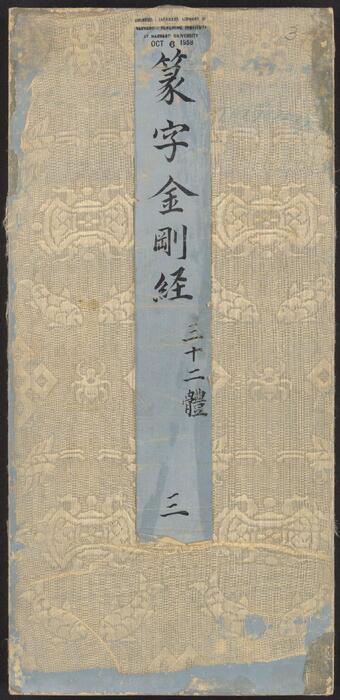 CHINESE - JAPANESE LIBRARY OF
HARVARD - YENCHING INSTITUTE
AT HARVARD UNIVERSITY
OCT 6 1958
篆字金剛経
三十二體
三